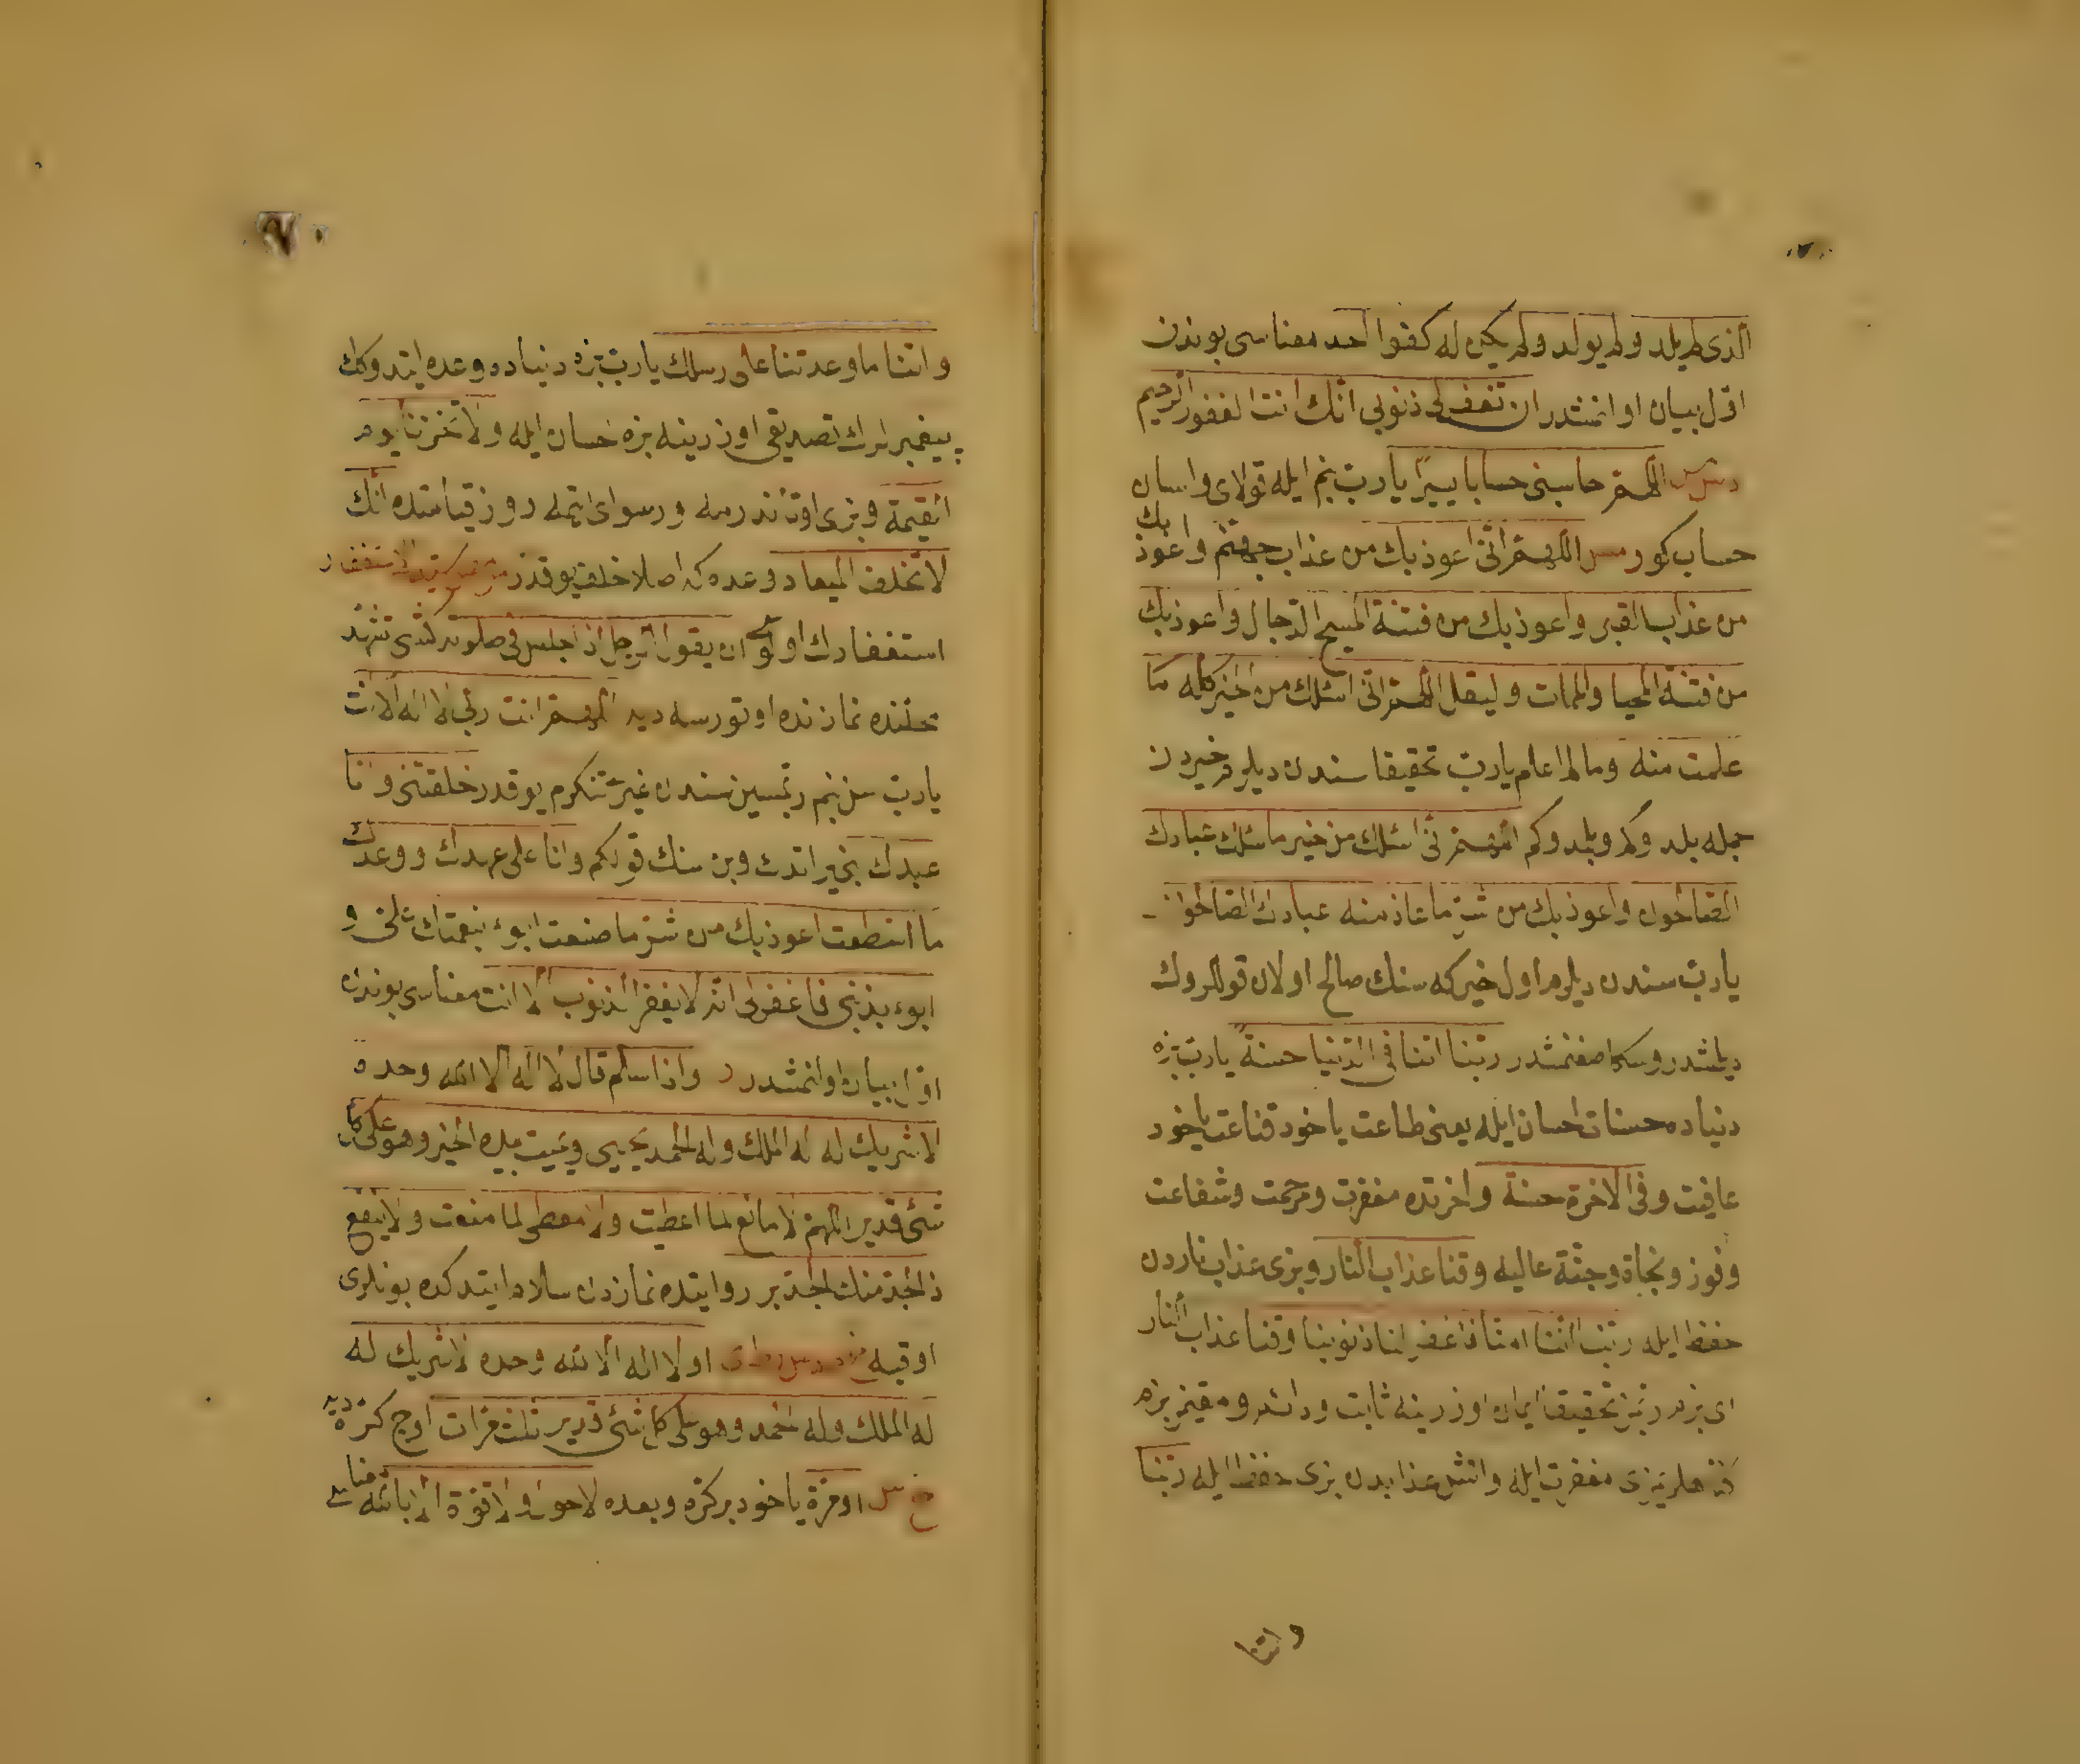 الذى لم يلد ولم يولد ولم يكن له كفوا احد معناسى بوندن
اول بيان اولنمشدر ان تغفرلى ذنوبى انك انت الغفور الرحيم
اللهم حاسبنى حسابا يسيرا يا رب بنم ايله قولاى واسان
حساب كور مس اللهم انى اعوذ بك من عذاب جهنم واعوذ بك
من عذاب القبر واعوذ بك من فتنة المسيح الدجال واعوذ بك
من فتنة المحيا والممات وليقل اللهم انى اسئلك من الخير كله ما
علمت منه وما لم اعلم يا رب تحقيقا سندن ديلرم خيردن
جمله بلدوكم وبلمدوكم اللهم انى اسئلك من خير ما سئلك عبادك
الصالحون واعوذ بك من شر ما عاذ منه عبادك الصالحون
يا رب سندن ديلرم اول خيركه سنك صالح اولان قوللروك
ديلمشدر وسكا صغنمشدر ربنا اتنا فى الدنيا حسنة يا رب بزه
دنياده حسنات احسان ايله يعنى طاعت ياخود قناعت ياخود
عافيت وفى الاخرة حسنة واخرتده مغفرت ومرحمت وشفاعت
وفوز ونجاة وجنة عاليه وقنا عذاب النار وبزى عذاب ناردن
حفظ ايله ربنا اننا امنا فاغفر لنا ذنوبنا وقنا عذاب النار
اى بزم ربمز تحقيقا ايمان اوزرينه ثابت ودائم ومقيمز بزم
كناهلريمزى مغفرت ايله وانش عذابدن بزى حفظ ايله ربنا
واتنا
واتنا ما وعدتنا على رسلك يا رب بزه دنياده وعده ايتدوكك
پيغمبرلرك تصديقى اوزرينه بزه احسان ايله ولا تخزنا يوم
القيمة وبزى اوتاندرمه ورسواى ايتمه روز قيامتده انك
لا تخلف الميعاد وعده كه اصلا خلف يوقدر
استغفارك اولوسى ان يقول الرجل اذا جلس فى صلوته كشى تشهد
محلنده نمازنده اوتورسه ديه اللهم انت ربى لا اله الا انت
يا رب سن بنم ربمسين سندن غيرى تنكرم يوقدر خلقتنى وانا
عبدك بنى يراتدك وبن سنك قولكم وانا على عهدك ووعدك
ما استطعت اعوذ بك من شر ما صنعت ابوء بنعمتك على و
ابوء بذنبى فاغفرلى انه لا يغفر الذنوب الا انت معناسى بوندن
اول بيان اولنمشدر د واذا سلم قال لا اله الا الله وحده
لا شريك له له الملك وله الحمد يحيى ويميت بيده الخير وهو على كل
شئ قدير اللهم لا مانع لما اعطيت ولا معطى لما منعت ولا ينفع
ذا الجد منك الجد بر روايتده نمازدن سلام ايتدكده بونلرى
اوقيه او لا اله الا الله وحده لا شريك له
له الملك وله الحمد وهو على كل شئ قدير ثلث مرات اوج كره ديه
خ س او مرة ياخود بر كره وبعده لا حول ولا قوة الا بالله معناسى